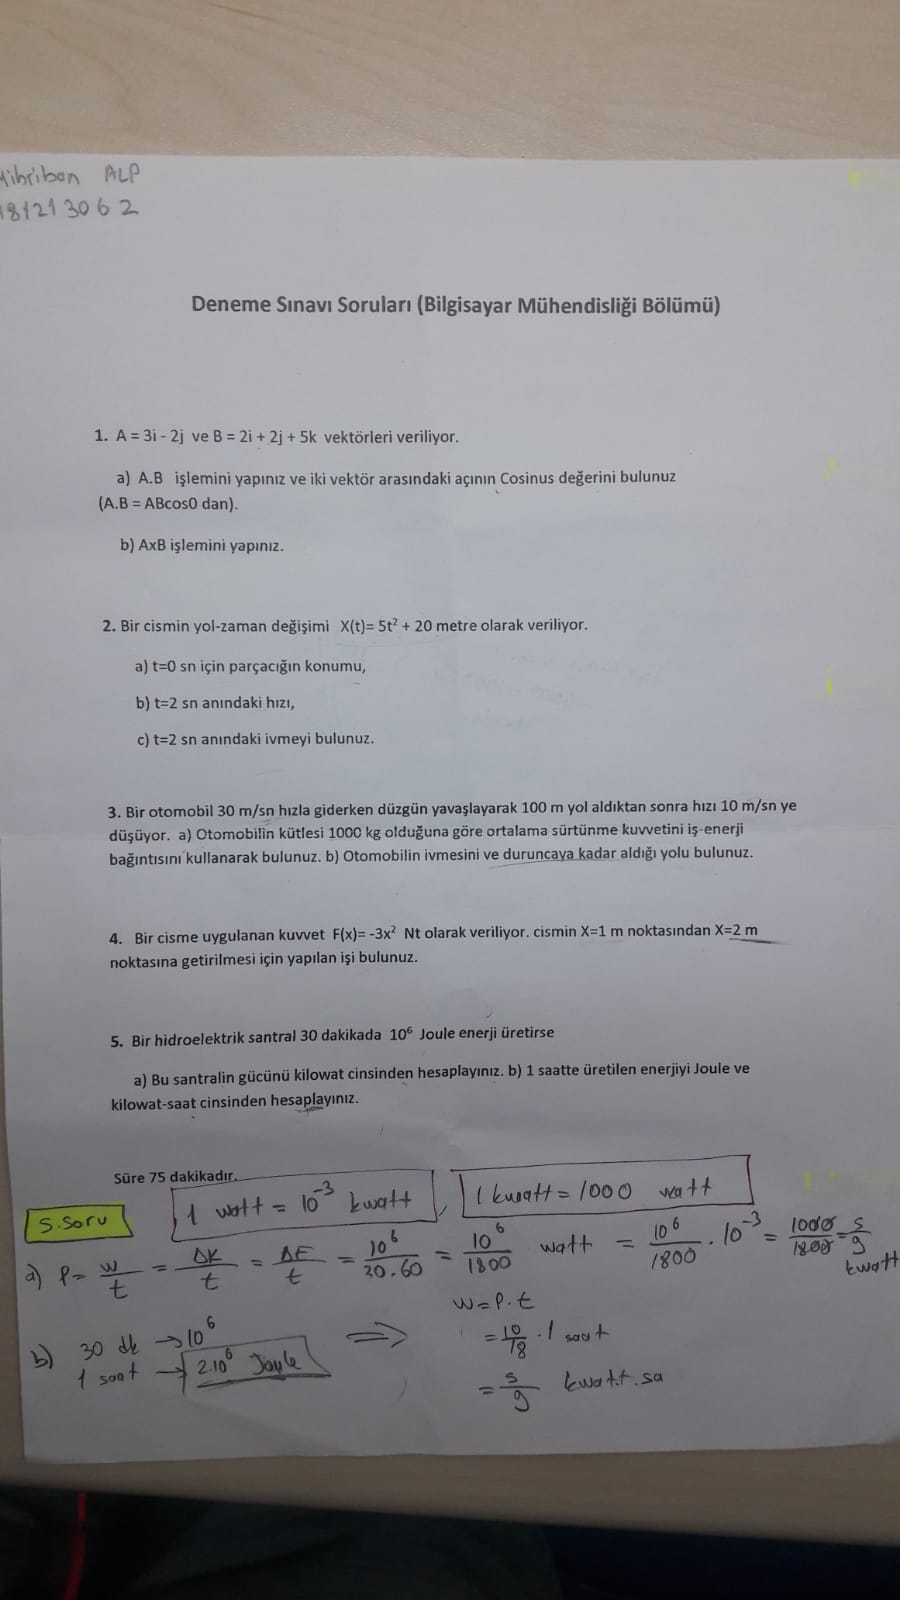 Mihriban ALP
181213062
Deneme Sınavı Soruları (Bilgisayar Mühendisliği Bölümü)
1. A = 3i - 2j ve B = 2i + 2j + 5k vektörleri veriliyor.
a) A.B işlemini yapınız ve iki vektör arasındaki açının Cosinus değerini bulunuz
(A.B = ABcos0 dan).
b) AxB işlemini yapınız.
2. Bir cismin yol-zaman değişimi X(t)= 5t² + 20 metre olarak veriliyor.
a) t=0 sn için parçacığın konumu,
b) t=2 sn anındaki hızı,
c) t=2 sn anındaki ivmeyi bulunuz.
3. Bir otomobil 30 m/sn hızla giderken düzgün yavaşlayarak 100 m yol aldıktan sonra hızı 10 m/sn ye
düşüyor. a) Otomobilin kütlesi 1000 kg olduğuna göre ortalama sürtünme kuvvetini iş-enerji
bağıntısını kullanarak bulunuz. b) Otomobilin ivmesini ve duruncaya kadar aldığı yolu bulunuz.
4. Bir cisme uygulanan kuvvet F(x)= -3x² Nt olarak veriliyor. cismin X=1 m noktasından X=2 m
noktasına getirilmesi için yapılan işi bulunuz.
5. Bir hidroelektrik santral 30 dakikada 10⁶ Joule enerji üretirse
a) Bu santralin gücünü kilowat cinsinden hesaplayınız. b) 1 saatte üretilen enerjiyi Joule ve
kilowat-saat cinsinden hesaplayınız.
Süre 75 dakikadır.
5.soru 1 watt = 10⁻³ kwatt, 1 kwatt = 1000 watt
a) P = W/t = ΔK/t = ΔE/t = 10⁶/30.60 = 10⁶/1800 watt = 10⁶/1800 . 10⁻³ = 1000/1800 = 5/9 kwatt
b) 30 dk → 10⁶ ⇒ W = P.t
1 saat → 2.10⁶ Joule = 10/18 . 1 saat
= 5/9 kwatt.sa